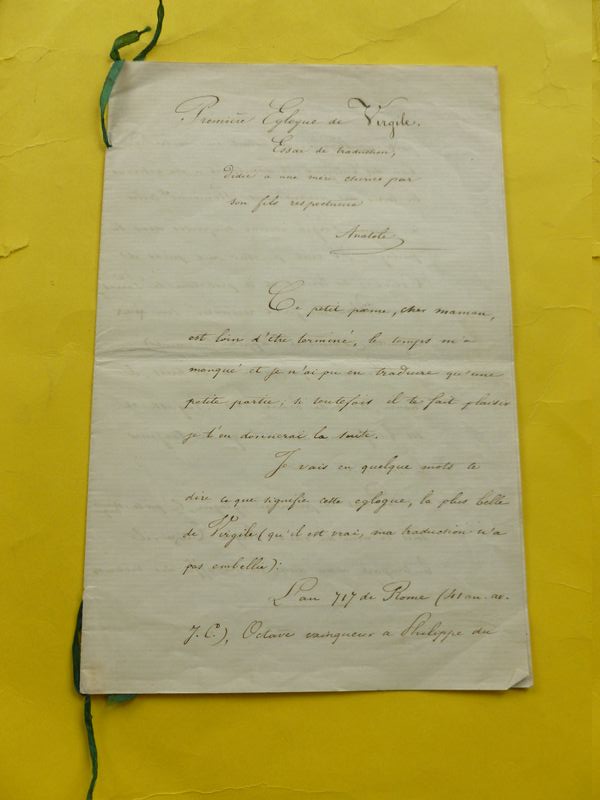 Première Eglogue de Virgile.
Essai de traduction,
dédié à une mère chérie par
son fils respectueux
Anatole
Ce petit poème, cher maman,
est loin d'être terminé, le temps m'a
manqué et je n'ai pu en traduire qu'une
petite partie, si toutefois il te fait plaisir
je t'en donnerai la suite.
Je vais en quelque mots te
dire ce que signifie cette eglogue, la plus belle
de Virgile (qu'il est vrai, ma traduction n'a
pas embellie):
L'an 717 de Rome (41 an. av.
J. C.), Octave vainqueur à Philippe du